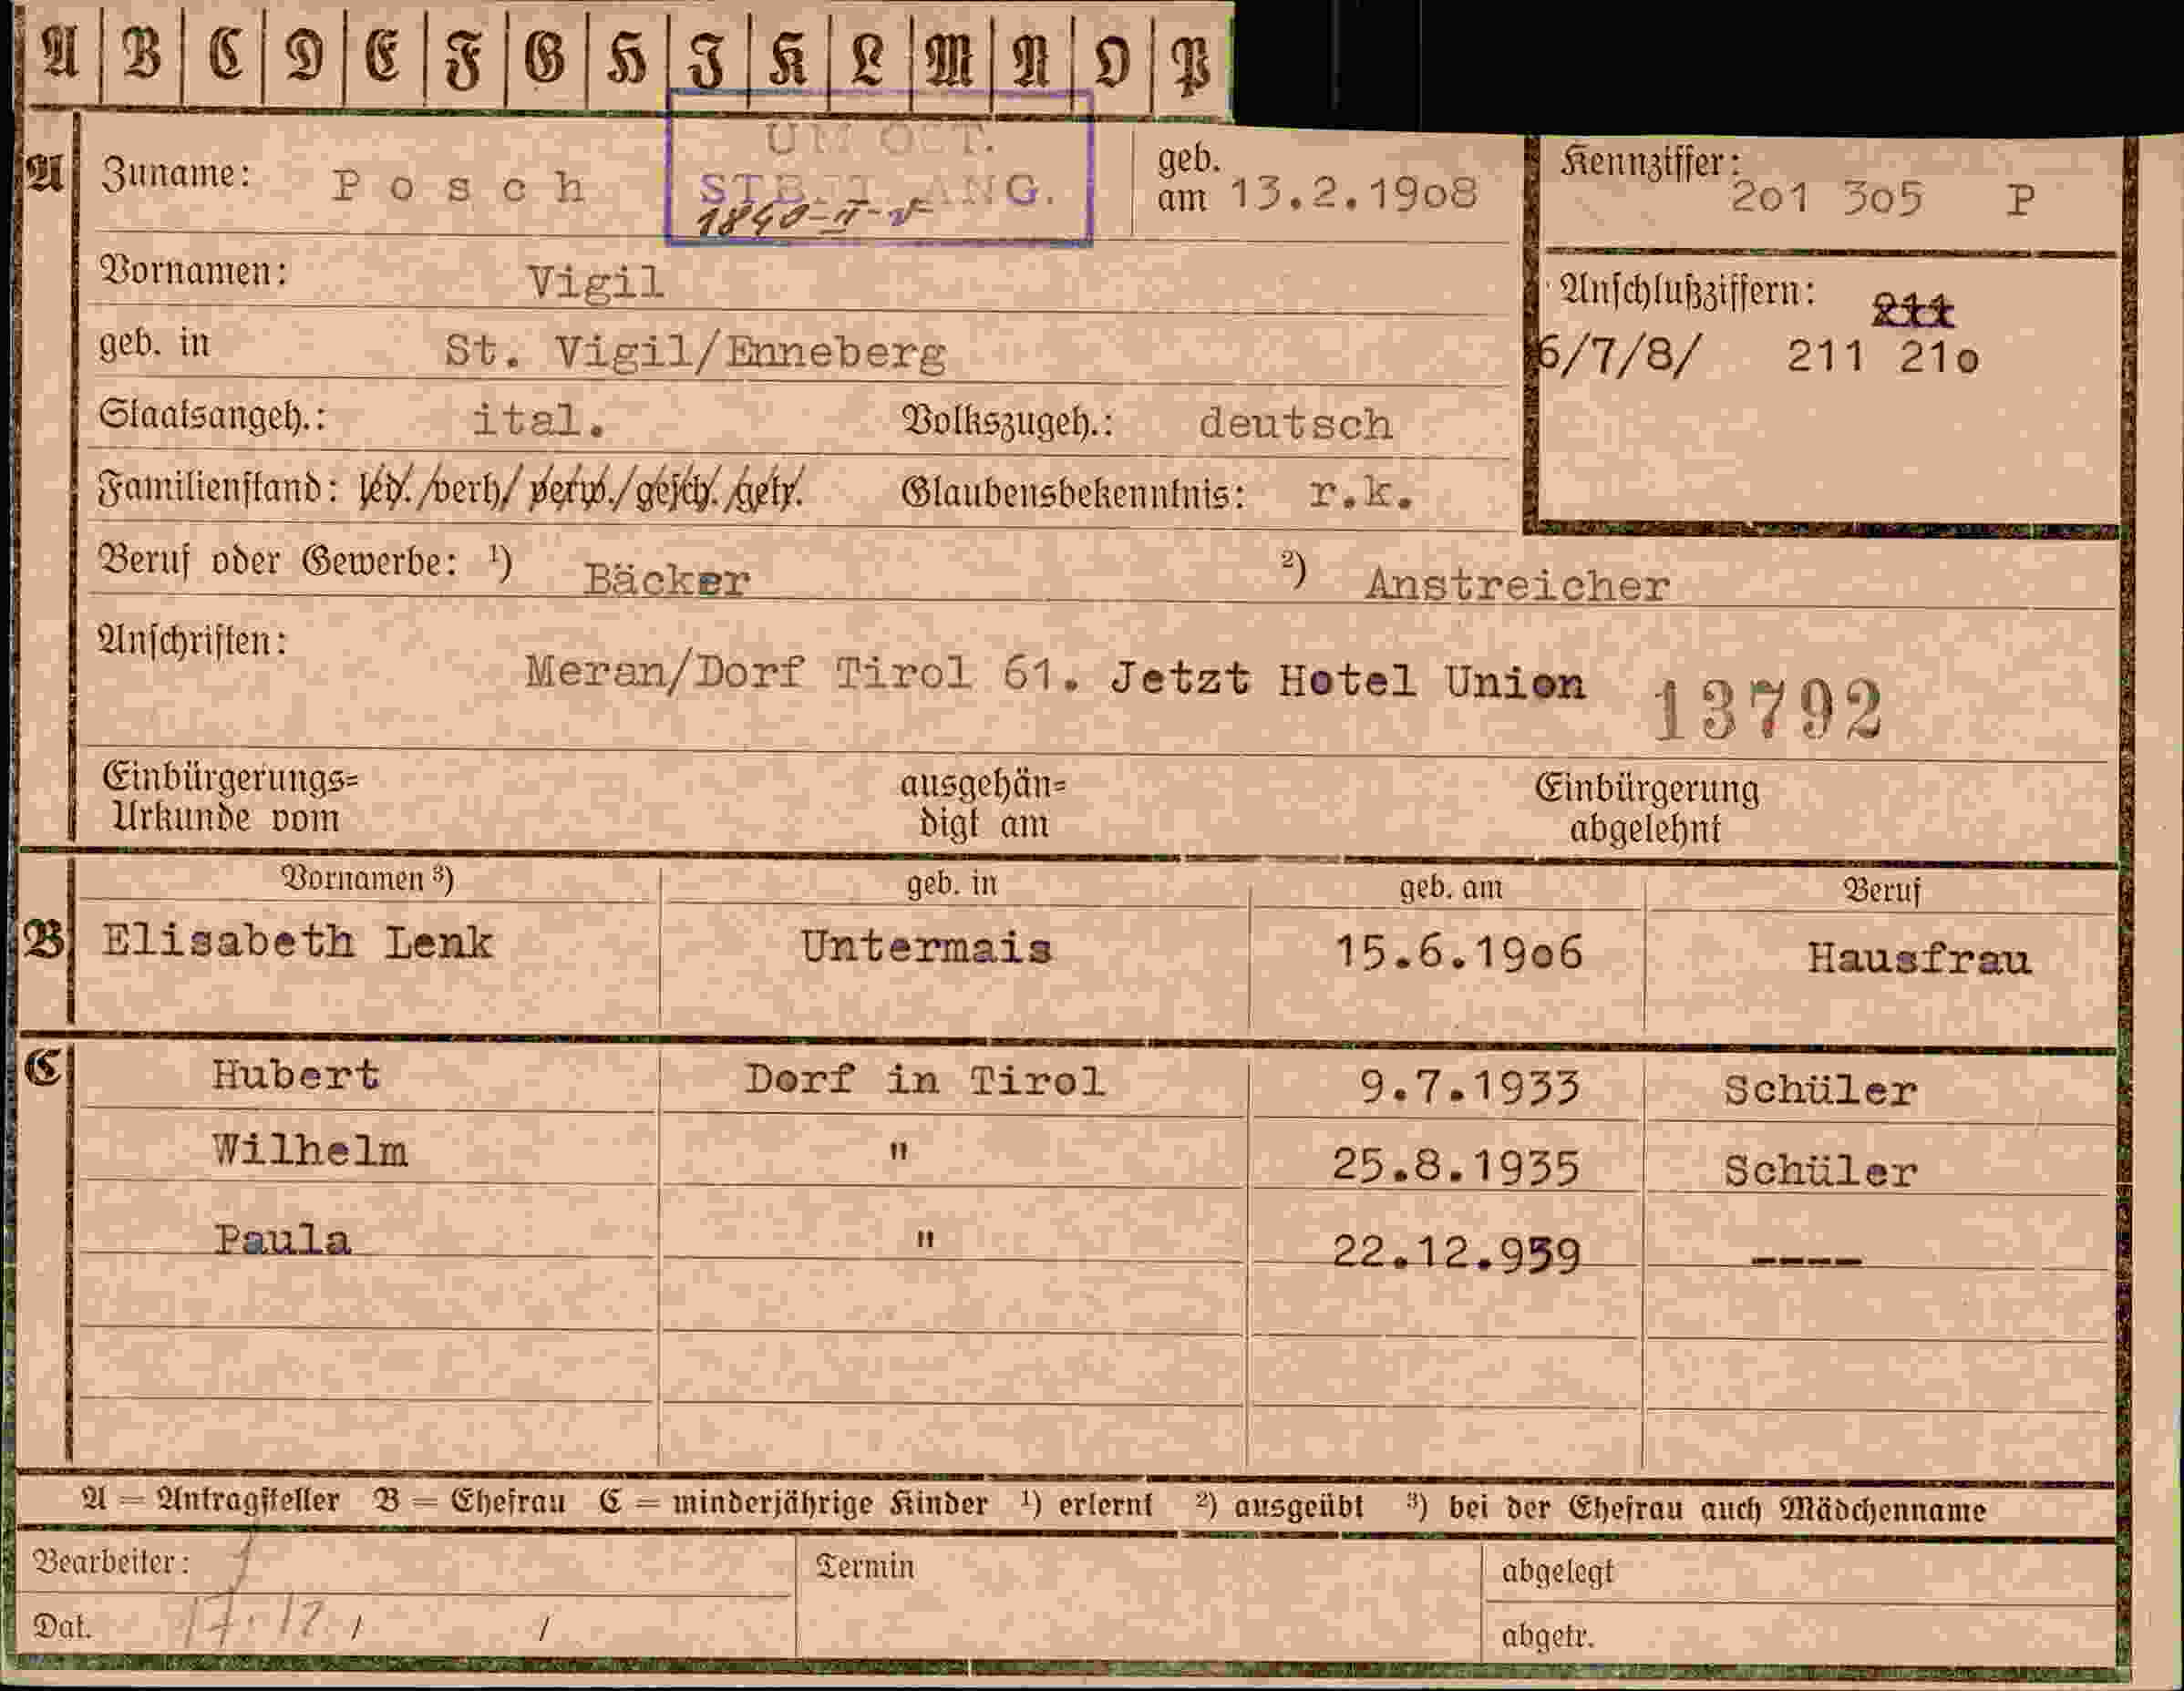 A B C D E F G H I K L M N O P
A Zuname: Posch
geb. am 13.2.19o8
Kennziffer: 2o1 3o5 P
1840-II-
Vornamen: Vigil
Anschlußziffern: 211
geb. in St. Vigil/Enneberg
6/7/8/ 211 21o
Staatsangeh.: ital. Volkszugeh.: deutsch
Familienstand: led./verh/ verw./gesch./getr. Glaubensbekenntnis: r.k.
Beruf oder Gewerbe: ¹) Bäcker ²) Anstreicher
Anschriften:
Meran/Dorf Tirol 61. Jetzt Hotel Union 13792
Einbürgerungs= ausgehän= Einbürgerung
Urkunde vom digt am abgelehnt
Vornamen ³) geb. in geb. am Beruf
B Elisabeth Lenk Untermais 15.6.19o6 Hausfrau
C Hubert Dorf in Tirol 9.7.1933 Schüler
Wilhelm " 25.8.1935 Schüler
Paula " 22.12.939 ----
A = Antragsteller B = Ehefrau C = minderjährige Kinder ¹) erlernt ²) ausgeübt ³) bei der Ehefrau auch Mädchenname
Bearbeiter: Termin abgelegt
Dat. 17.12. / / abgetr.